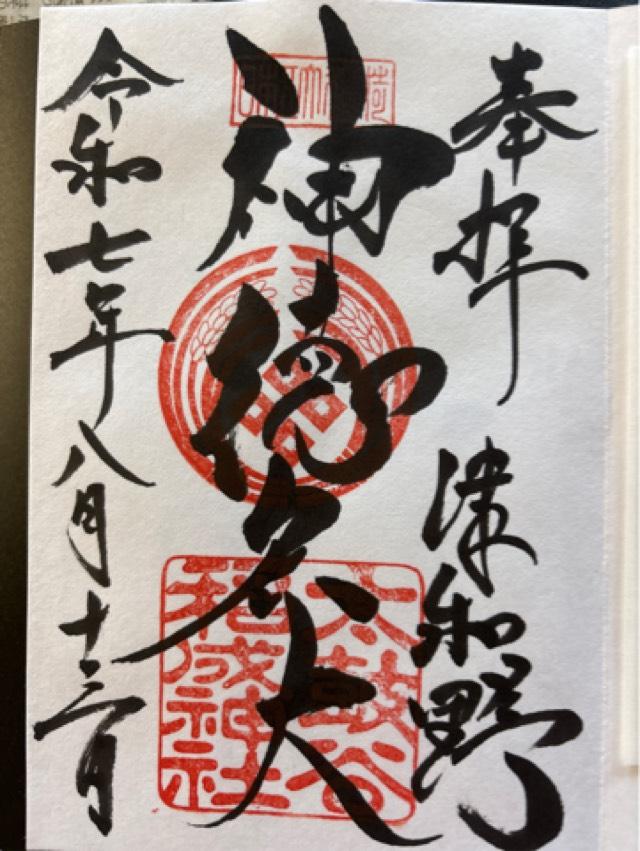 奉拝
津和野
神徳宏大
令和七年八月十三日
太皷谷
稲成神社